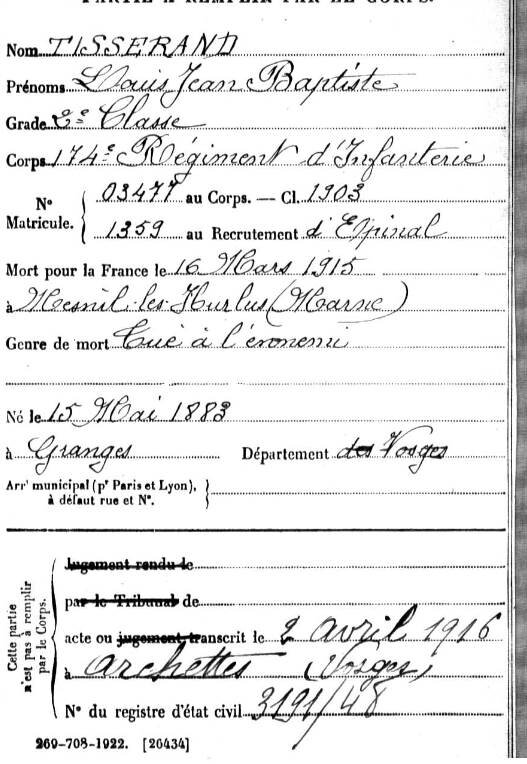 PARTIE À REMPLIR PAR LE CORPS.
Nom TISSERAND
Prénoms Louis Jean Baptiste
Grade 2e Classe
Corps 174e Régiment d'Infanterie
N° Matricule. { 03477 au Corps. — Cl. 1903
1359 au Recrutement d'Epinal
Mort pour la France le 16 Mars 1915
à Mesnil-les-Hurlus (Marne)
Genre de mort Tué à l'ennemi
Né le 15 Mai 1883
à Granges Département des Vosges
Arrt municipal (pr Paris et Lyon), }
à défaut rue et N°.
Cette partie
n'est pas à remplir
par le Corps.
Jugement rendu le
par le Tribunal de
acte ou jugement transcrit le 2 avril 1916
à Archettes (Vosges)
N° du registre d'état civil 3191/48
269-708-1922. [26434]